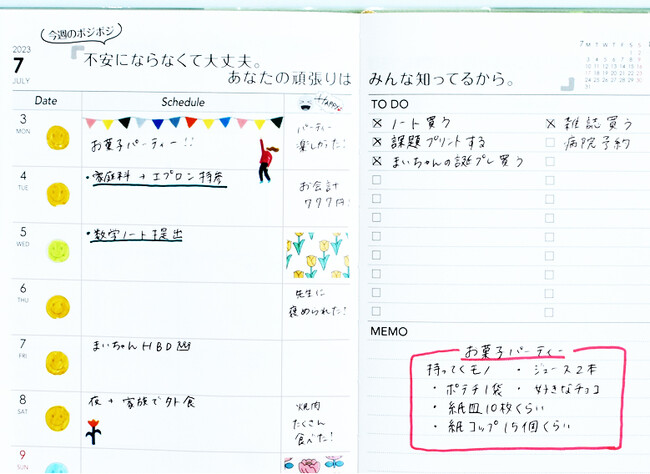 今週のポジポジ
2023
7
JULY
不安にならなくて大丈夫。
あなたの頑張りは
みんな知ってるから。
Date
Schedule
HAPPY
3
MON
お菓子パーティー!!
パーティー
楽しかった!
4
TUE
・家庭科 + エプロン持参
お会計
777円!
5
WED
・数学ノート提出
6
THU
先生に
褒められた!
7
FRI
まいちゃんHBD
8
SAT
夜 + 家族で外食
焼肉
たくさん
食べた!
9
SUN
7 M T W T F S S
TO DO
ノート買う
雑誌買う
課題プリントする
病院予約
まいちゃんの誕プレ買う
MEMO
お菓子パーティー
持ってくモノ ・ジュース2本
・ポテチ1袋 ・好きなチョコ
・紙皿10枚くらい
・紙コップ15個くらい